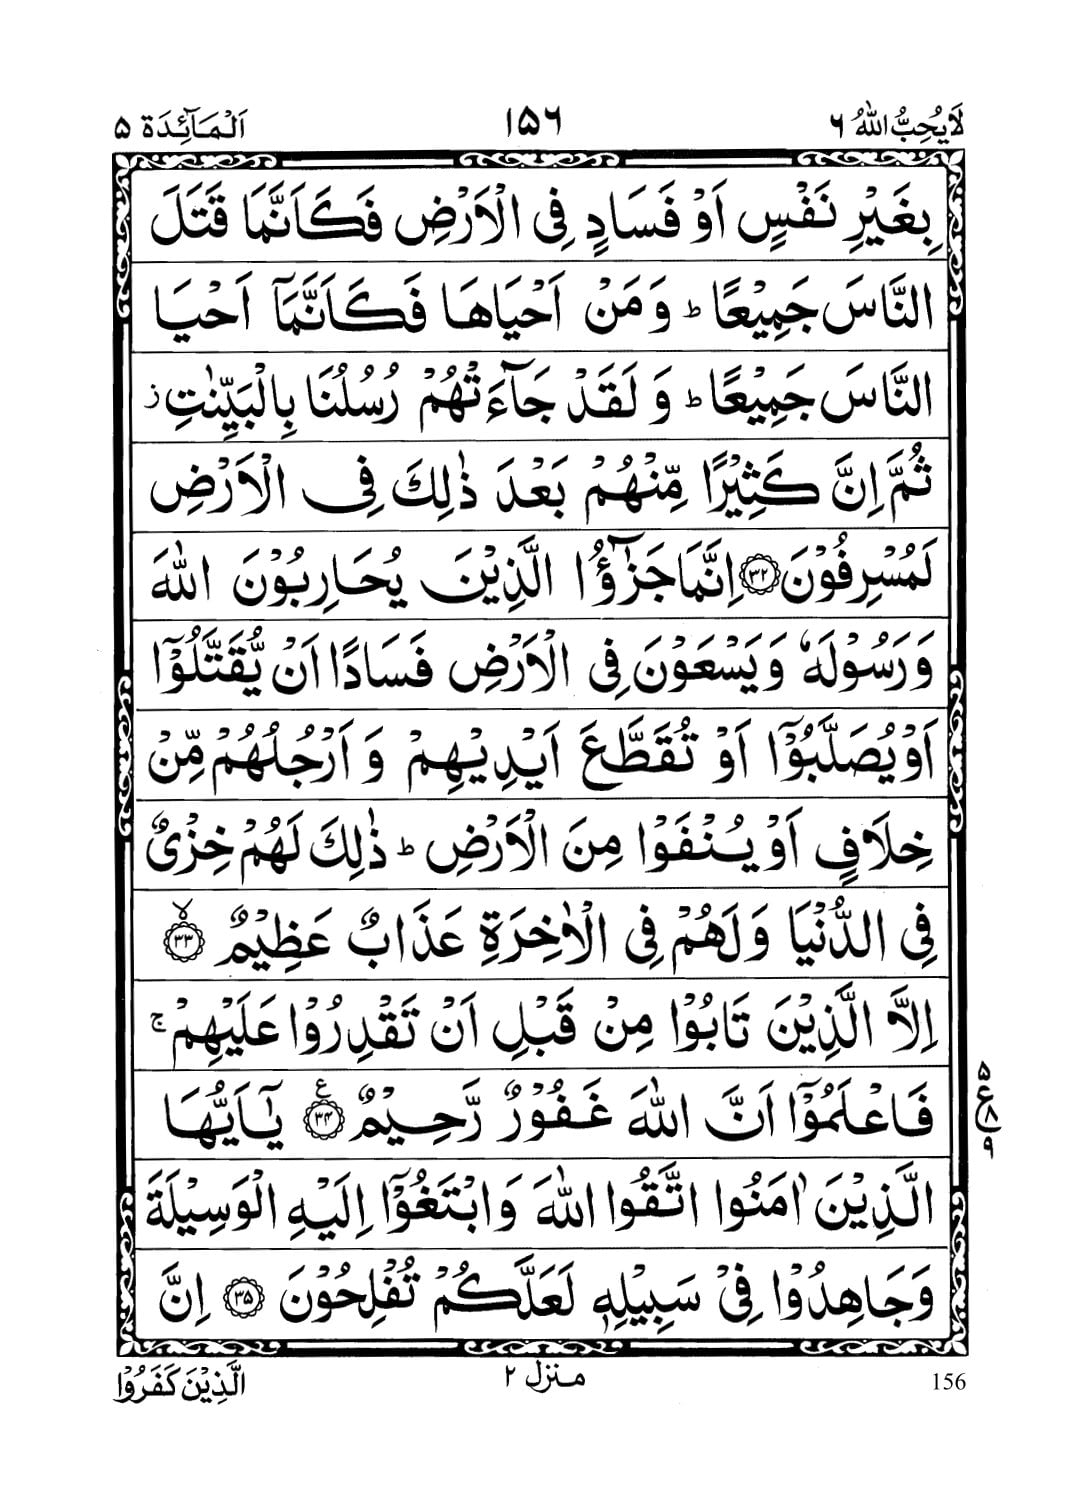 لَا يُحِبُّ اللّٰهُ ٦ ١٥٦ اَلْمَآئِدَة ٥
بِغَيْرِ نَفْسٍ اَوْ فَسَادٍ فِي الْاَرْضِ فَكَاَنَّمَا قَتَلَ
النَّاسَ جَمِيْعًا ؕ وَمَنْ اَحْيَاهَا فَكَاَنَّمَاۤ اَحْيَا
النَّاسَ جَمِيْعًا ؕ وَ لَقَدْ جَآءَتْهُمْ رُسُلُنَا بِالْبَيِّنٰتِ ز
ثُمَّ اِنَّ كَثِيْرًا مِّنْهُمْ بَعْدَ ذٰلِكَ فِي الْاَرْضِ
لَمُسْرِفُوْنَ ﴿٣٢﴾ اِنَّمَا جَزٰٓؤُا الَّذِيْنَ يُحَارِبُوْنَ اللّٰهَ
وَ رَسُوْلَهٗ وَ يَسْعَوْنَ فِي الْاَرْضِ فَسَادًا اَنْ يُّقَتَّلُوْۤا
اَوْ يُصَلَّبُوْۤا اَوْ تُقَطَّعَ اَيْدِيْهِمْ وَ اَرْجُلُهُمْ مِّنْ
خِلَافٍ اَوْ يُنْفَوْا مِنَ الْاَرْضِ ؕ ذٰلِكَ لَهُمْ خِزْيٌ
فِي الدُّنْيَا وَ لَهُمْ فِي الْاٰخِرَةِ عَذَابٌ عَظِيْمٌ ﴿٣٣﴾ ۙ
اِلَّا الَّذِيْنَ تَابُوْا مِنْ قَبْلِ اَنْ تَقْدِرُوْا عَلَيْهِمْ ۚ
فَاعْلَمُوْۤا اَنَّ اللّٰهَ غَفُوْرٌ رَّحِيْمٌ ﴿٣٤﴾ ع يٰۤاَيُّهَا
٥
ع ٨
٩
الَّذِيْنَ اٰمَنُوا اتَّقُوا اللّٰهَ وَابْتَغُوْۤا اِلَيْهِ الْوَسِيْلَةَ
وَجَاهِدُوْا فِيْ سَبِيْلِهٖ لَعَلَّكُمْ تُفْلِحُوْنَ ﴿٣٥﴾ اِنَّ
156 منزل ٢ الَّذِيْنَ كَفَرُوْا